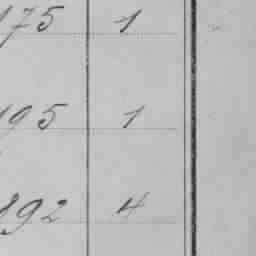 175 1
195 1
192 4